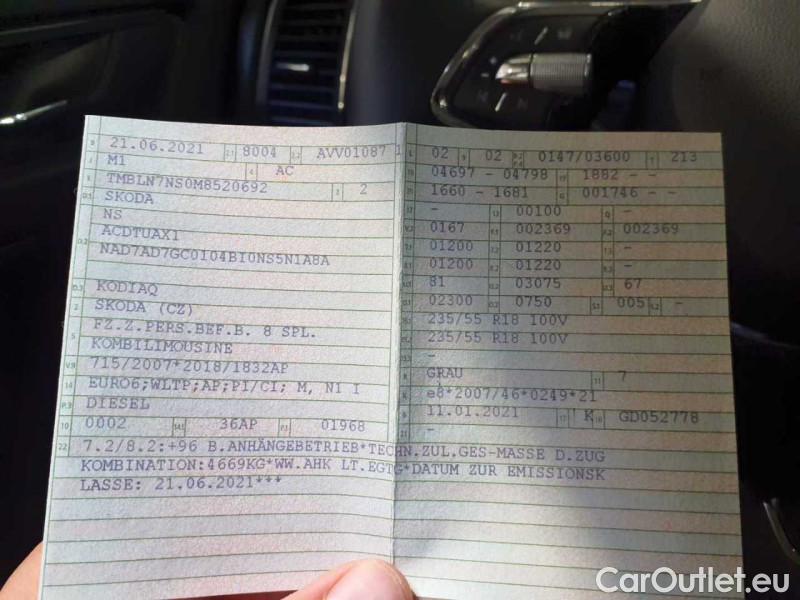 21.06.2021 8004 AVV01087 1
M1 AC
TMBLN7NS0M8520692 2
SKODA
NS
ACDTUAX1
NAD7AD7GC0I04BI0NS5N1A8A
KODIAQ
SKODA (CZ)
FZ.Z.PERS.BEF.B. 8 SPL.
KOMBILIMOUSINE
715/2007*2018/1832AP
EURO6;WLTP;AP;PI/CI; M, N1 I
DIESEL
10 0002 36AP 01968
22 7.2/8.2:+96 B.ANHÄNGEBETRIEB*TECHN.ZUL.GES-MASSE D.ZUG
KOMBINATION:4669KG*WW.AHK LT.EGTG*DATUM ZUR EMISSIONSK
LASSE: 21.06.2021***
02 02 0147/03600 213
04697 - 04798 1882 - -
1660 - 1681 001746 - -
- 00100 -
0167 002369 002369
01200 01220 -
01200 01220 -
81 03075 67
02300 0750 005 -
235/55 R18 100V
235/55 R18 100V
-
GRAU 7
e8*2007/46*0249*21
11.01.2021 K GD052778
-
CarOutlet.eu